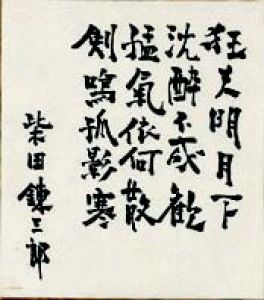 狂夫明月下
沈酔不成歓
猛氣依何散
剣鳴孤影寒
柴田錬三郎